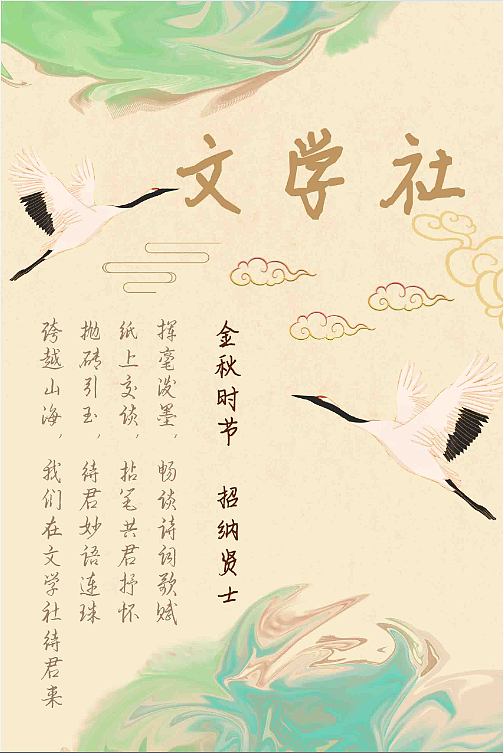 文学社
金秋时节 招纳贤士
挥毫泼墨，畅谈诗词歌赋
纸上交谈，拈笔共君抒怀
抛砖引玉，待君妙语连珠
跨越山海，我们在文学社待君来